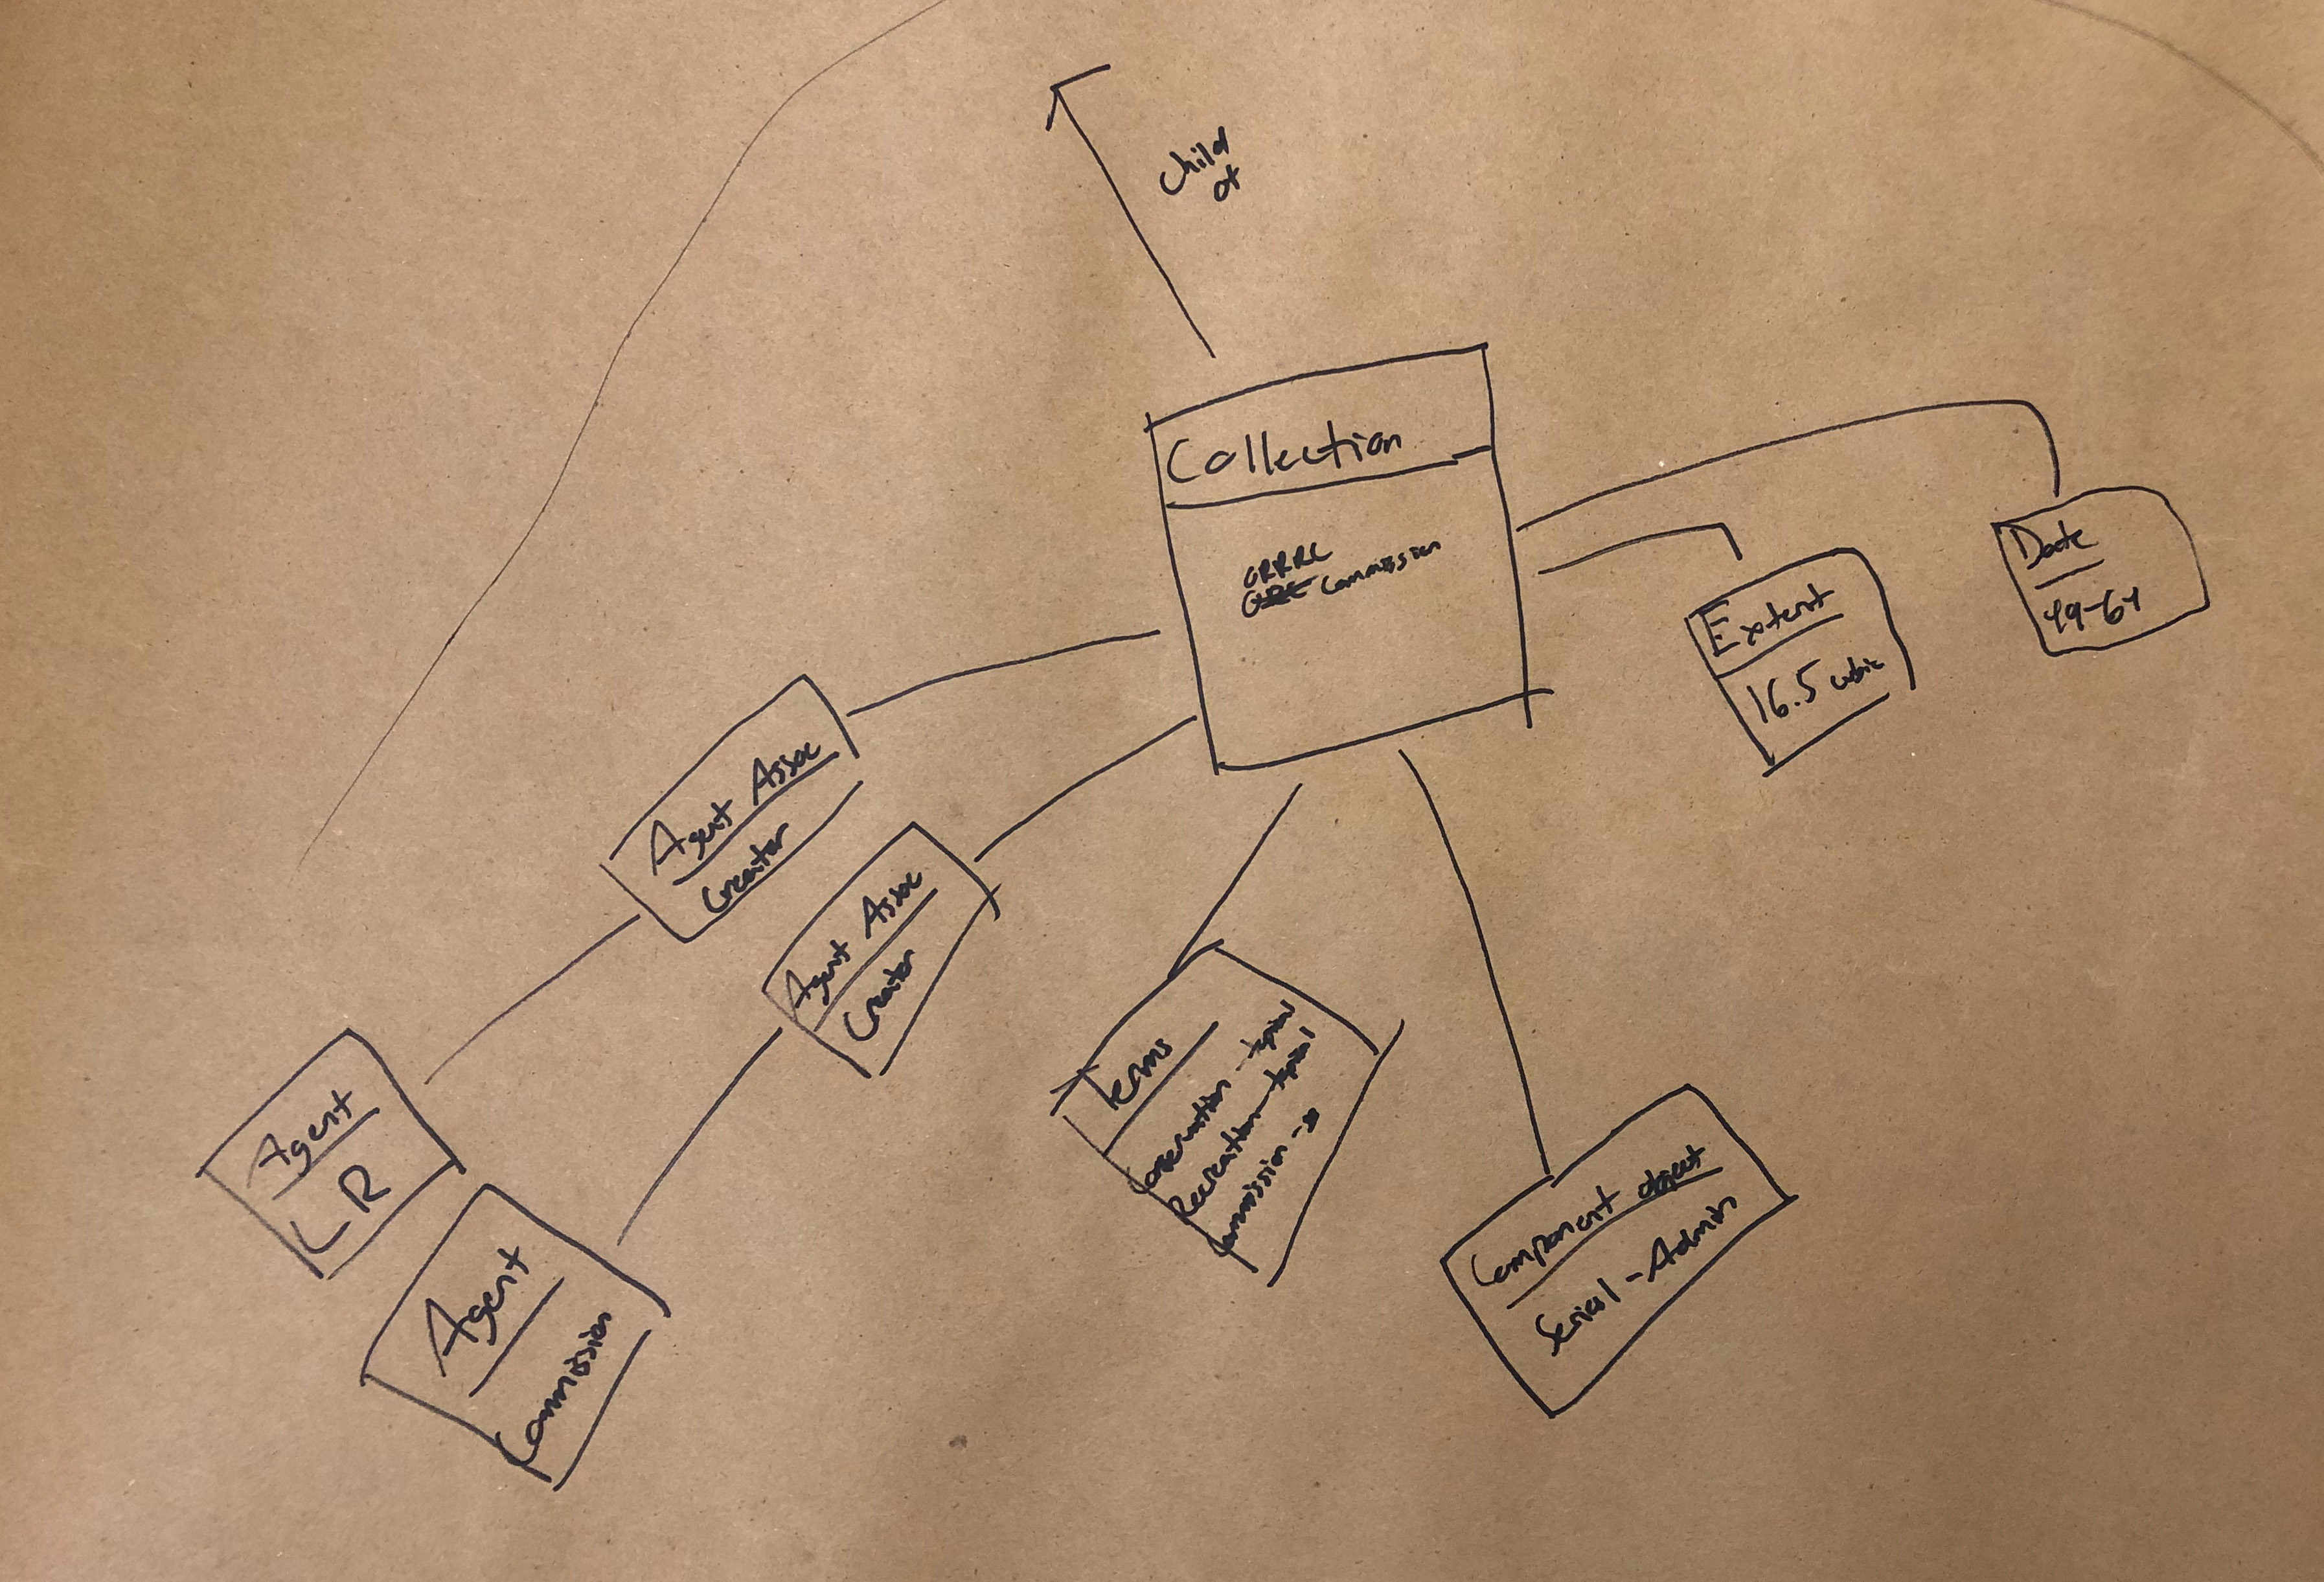 Child
of
Collection
ORRRC
Commission
Date
49-64
Extent
16.5 cubic
Agent Assoc
Creator
Agent Assoc
Creator
Agent
LR
Agent
Commission
Terms
Conservation - topical
Recreation - topical
Commission -
Component object
Series 1 - Admin